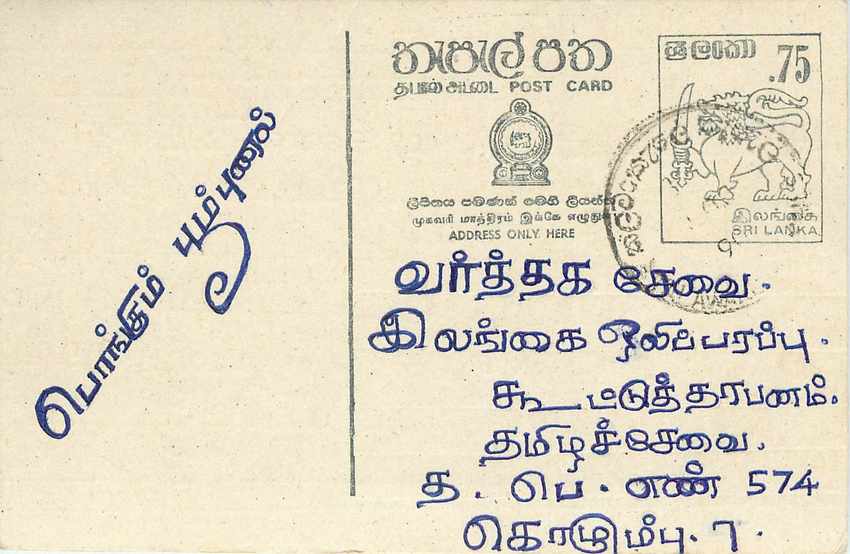 பொங்கும் பூம்புனல்
තැපැල් පත
தபால் அட்டை POST CARD
ලිපිනය පමණක් මෙහි ලියන්න
முகவரி மாத்திரம் இங்கே எழுதுக
ADDRESS ONLY HERE
ශ්‍රී ලංකා
.75
இலங்கை
SRI LANKA
வர்த்தக சேவை.
இலங்கை ஒலிப்பரப்பு.
கூட்டுத்தாபனம்.
தமிழ்ச்சேவை.
த. பெ. எண் 574
கொழும்பு. 7.